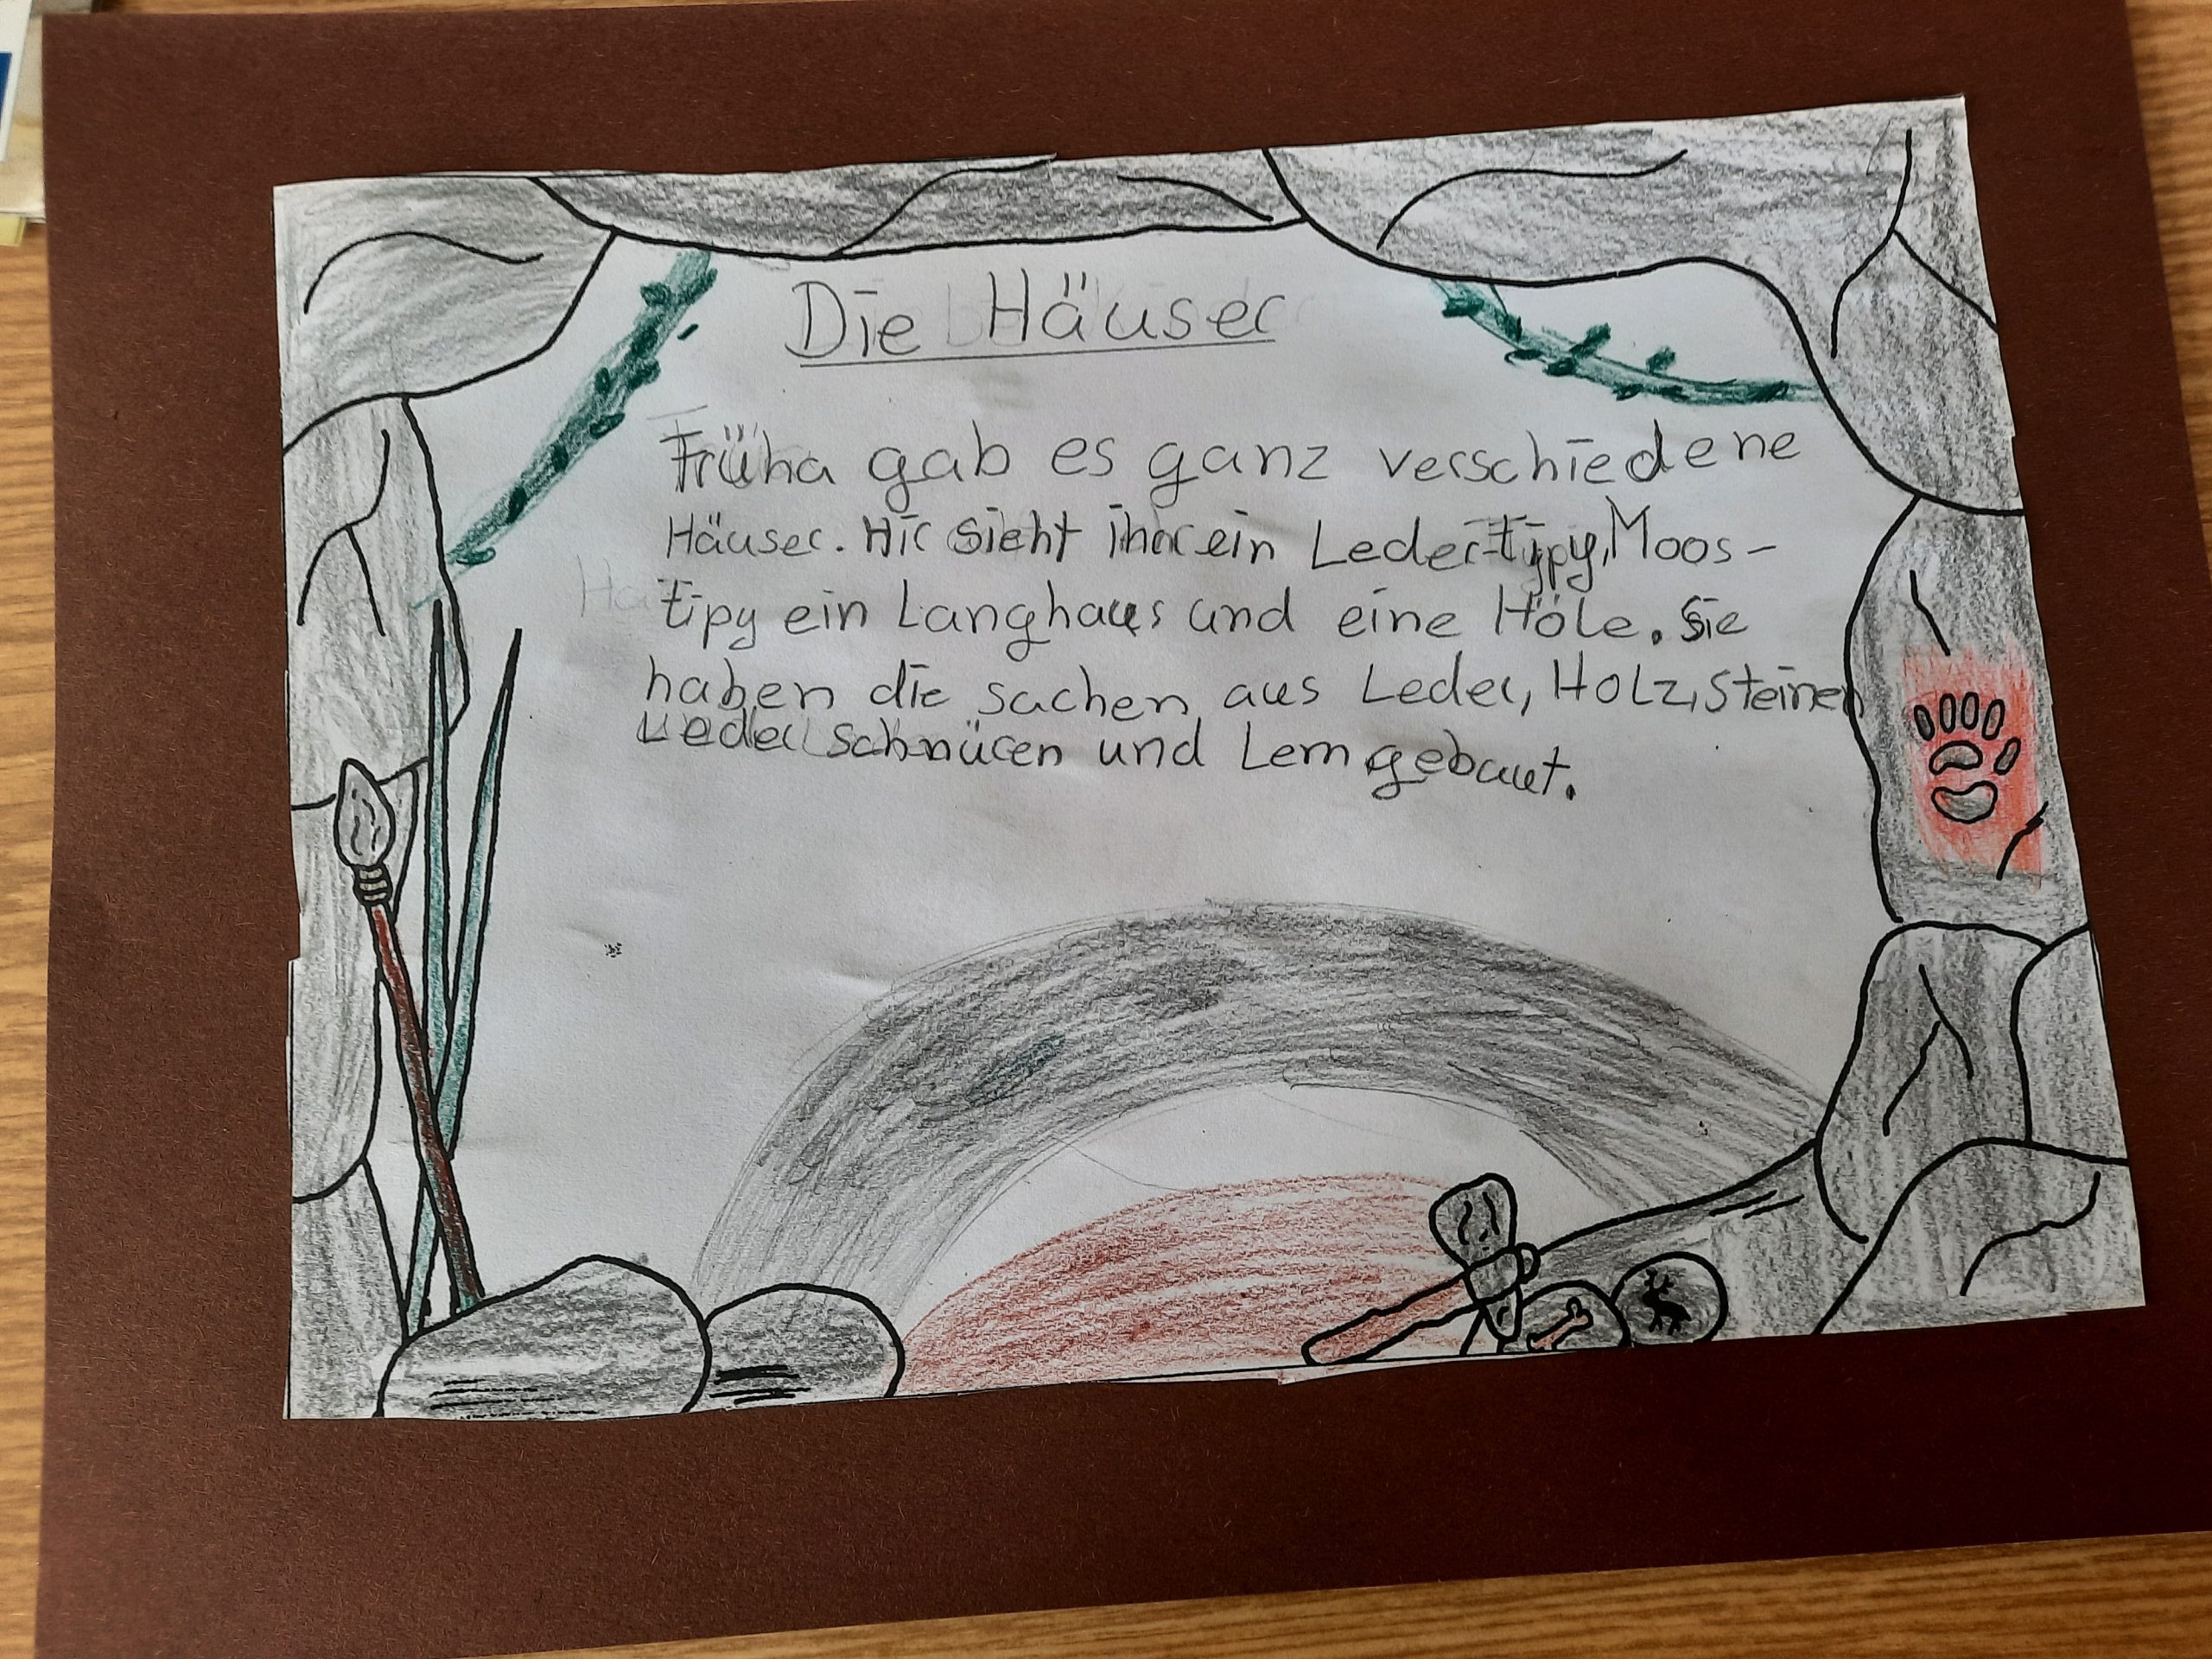 Die Häuser
Früha gab es ganz verschiedene
Häuser. Hir sieht ihr ein Leder-typy, Moos-
tipy ein Langhaus und eine Höle. Sie
haben die sachen aus Leder, Holz, Steinen
Leder schnüren und Lem gebaut.